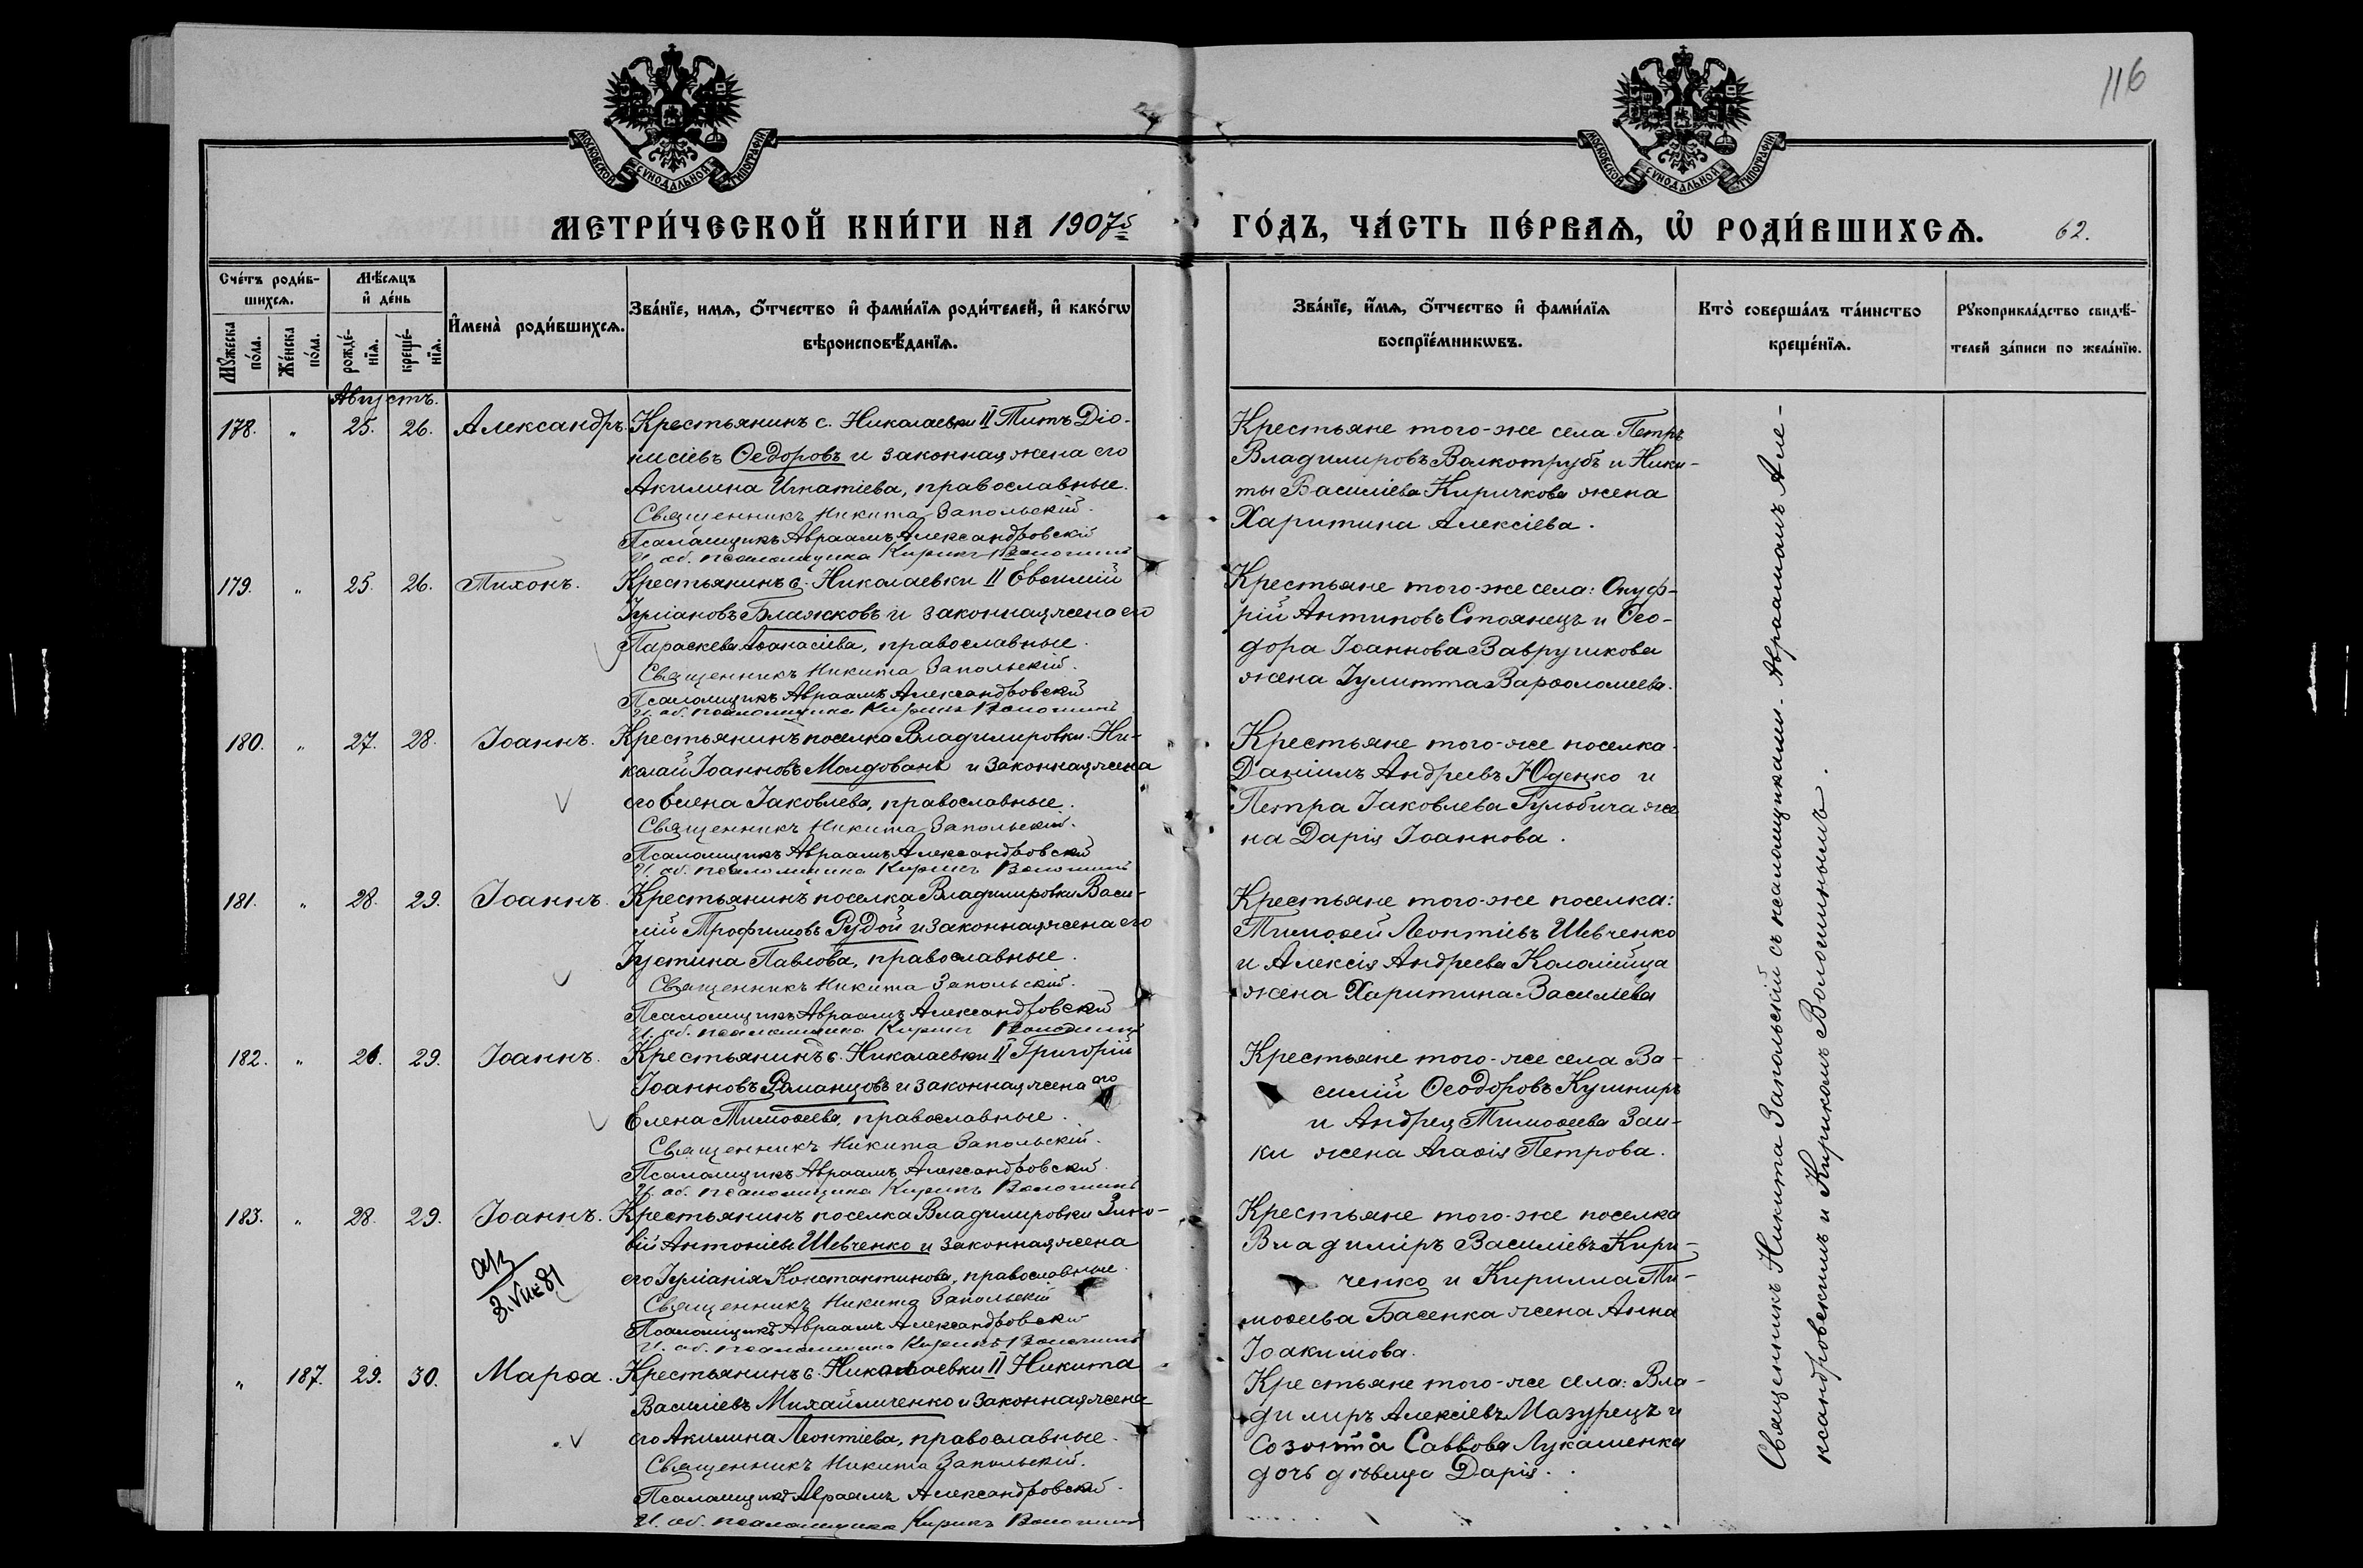 116
МОСКОВСКОЙ СѴНОДАЛЬНОЙ ТИПОГРАФІИ
МОСКОВСКОЙ СѴНОДАЛЬНОЙ ТИПОГРАФІИ
МЕТРИ́ЧЕСКОЙ КНИ́ГИ НА 1907й ГО́ДЪ, ЧА́СТЬ ПЕ́РВАѦ, Ѡ҆ РОДИ́ВШИХСѦ. 62.
Сче́тъ роди́в-
шихсѧ.
Мꙋ́жеска по́ла.
Же́нска по́ла.
Мѣ́сѧцъ
и҆ де́нь
рожде́-
нїѧ.
креще́-
нїѧ.
И҆мена̀ роди́вшихсѧ.
Зва́нїе, имѧ, ѻ҆́тчество и҆ фами́лїѧ роди́телей, и҆ како́гѡ
вѣроисповѣ́данїѧ.
Зва́нїе, и҆́мѧ, ѻ҆́тчество и҆ фами́лїѧ
воспрїе́мникѡвъ.
Кто̀ соверша́лъ та́инство
креще́нїѧ.
Рꙋкоприкла́дство свидѣ́-
телей за́писи по жела́нїю.
Августъ.
178. " 25. 26. Александръ.
Крестьянинъ с. Николаевки II Титъ Діо-
нисіевъ Ѳедоровъ и законная жена его
Акилина Игнатіева, православные.
Священникъ Никита Запольскій.
Псаломщикъ Авраамъ Александровскій
И. об. псаломщика Кирикъ Волошинъ
Крестьяне того-же села Петръ
Владимировъ Валкотрубъ и Ники-
ты Василіева Киричкова жена
Харитина Алексіева.
179. " 25. 26. Тихонъ.
Крестьянинъ с. Николаевки II Евѳимій
Іуліановъ Блажковъ и законная жена его
Параскева Аѳанасіева, православные.
Священникъ Никита Запольскій.
Псаломщикъ Авраамъ Александровскій
И. об. псаломщика Кирикъ Волошинъ
Крестьяне того-же села: Онуф-
рій Антиповъ Стоянецъ и Ѳео-
дора Іоаннова Заврушкова
жена Іулитта Варѳоломеева.
180. " 27. 28. Іоаннъ.
Крестьянинъ поселка Владимировки Ни-
колай Іоанновъ Молдованъ и законная жена
его Елена Іаковлева, православные.
Священникъ Никита Запольскій.
Псаломщикъ Авраамъ Александровскій
И. об. псаломщика Кирикъ Волошинъ
Крестьяне того-же поселка
Даніилъ Андреевъ Юденко и
Петра Іаковлева Гульбича же
на Дарія Іоаннова.
181. " 28. 29. Іоаннъ.
Крестьянинъ поселка Владимировки Васи-
лій Трофимовъ Рудой и законная жена его
Іустина Павлова, православные.
Священникъ Никита Запольскій.
Псаломщикъ Авраамъ Александровскій
И. об. псаломщика Кирикъ Волошинъ
Крестьяне того-же поселка:
Тимоѳей Леонтіевъ Шевченко
и Алексія Андреева Коломійца
жена Харитина Василіева
182. " 29. Іоаннъ.
Крестьянинъ с. Николаевки II Григорій
Іоанновъ Романцовъ и законная жена его
Елена Тимоѳеева, православные.
Священникъ Никита Запольскій.
Псаломщикъ Авраамъ Александровскій
И. об. псаломщика Кирикъ Волошинъ
Крестьяне того-же села Ва-
силій Ѳеодоровъ Кушниръ
и Андрея Тимоѳеева Заи-
ки жена Агаѳія Петрова.
183. " 28. 29. Іоаннъ.
3.VII-81
Крестьянинъ поселка Владимировки Зино-
вій Антоніевъ Шевченко и законная жена
его Іуліанія Константинова, православные.
Священникъ Никита Запольскій
Псаломщикъ Авраамъ Александровскій
И. об. псаломщика Кирикъ Волошинъ
Крестьяне того-же поселка
Владиміръ Василіевъ Кири-
ченко и Кирилла Ти-
моѳеева Басенка жена Анна
Іоакимова.
" 187. 29. 30. Марѳа.
Крестьянинъ с. Николаевки II Никита
Василіевъ Михайличенко и законная жена
его Акилина Леонтіева, православные.
Священникъ Никита Запольскій.
Псаломщикъ Авраамъ Александровскій
И. об. псаломщика Кирикъ Волошинъ
Крестьяне того-же села: Вла-
димиръ Алексіевъ Мазурецъ и
Созонта Саввова Лукашенка
дочь дѣвица Дарія.
Священникъ Никита Запольскій съ псаломщиками- Авраамомъ Але-
ксандровскимъ и Кирикомъ Волошинымъ.